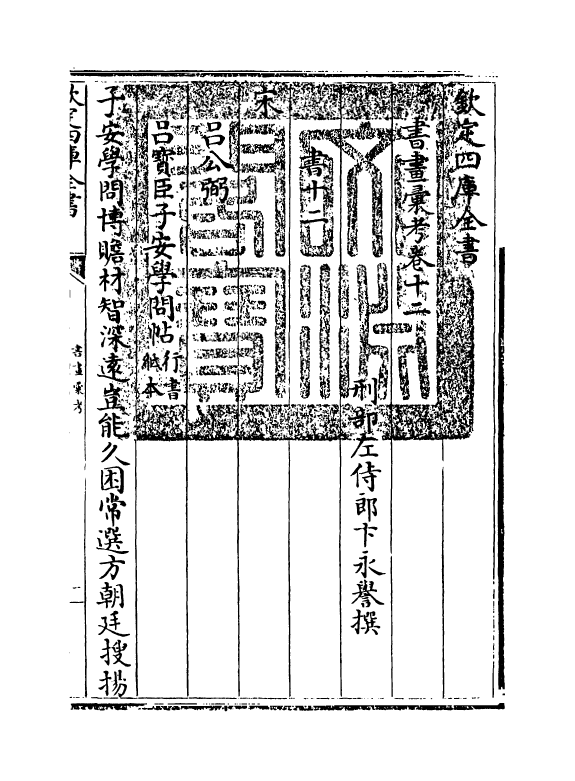 欽定四庫全書
書畫彙考卷十二
刑部左侍郎卞永譽撰
書十二
宋
呂公弼
呂寳臣子安學問帖行書紙本
子安學問博瞻材智深逺豈能久困常選方朝廷搜揚
欽定四庫全書
書畫彙考